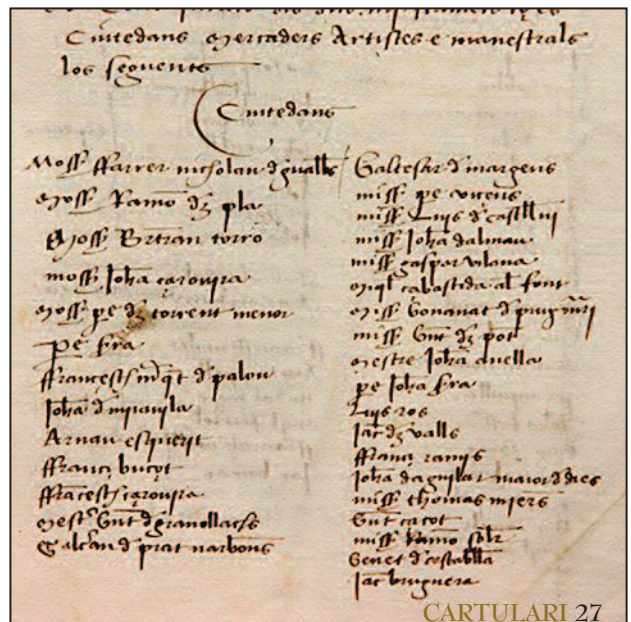 Ciutedans mercaders Artistes e manestrals
los seguents
Ciutedans
Moss ffarrer nicholau d gualbs
moss Ramo dz pla
Moss Brtran torro
moss Joha carovira
moss pe dz torrent menor
pe fra
ffrancesch d palou
Joha d
Arnau esquerit
ffranci buçot
ffrancesch çarovira
mestr Gut d granollachs
Galcran d prat narbones
Baltesar d margens
miss pe vicens
miss Luis d castllvi
miss Joha dalmau
miss gaspar vilana
miql cabastida al font
miss bonanat d puig
miss Gut dz pos
mestre Joha avella
pe Joha fra
Luys ros
Jac dz valls
ffranci ramis
Joha daguilar maior d dies
miss thomas miers
Gut caçot
miss Ramo
benet d costabella
Jac bruguera
CARTULARI 27